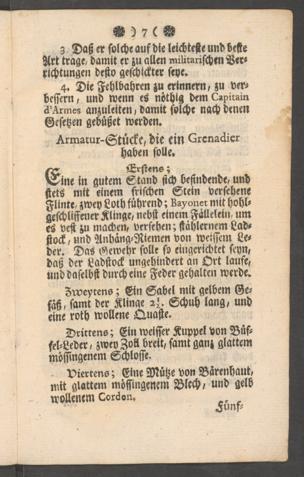 ❋ ) 7 ( ❋
3. Daß er solche auf die leichteste und beste
Art trage, damit er zu allen militarischen Ver-
richtungen desto geschickter seye.
4. Die Fehlbahren zu erinnern, zu ver-
bessern, und wenn es nöthig dem Capitain
d'Armes anzuleiten, damit solche nach denen
Gesetzen gebüßet werden.
Armatur-Stücke, die ein Grenadier
haben solle.
Erstens;
Eine in gutem Stand sich befindende, und
stets mit einem frischen Stein versehene
Flinte, zwey Loth führend; Bayonet mit hohl-
geschliffener Klinge, nebst einem Fällelein, um
es vest zu machen, versehen; stählernem Lad-
stock, und Anhäng-Riemen von weissem Le-
der. Das Gewehr solle so eingerichtet seyn,
daß der Ladstock ungehindert an Ort laufe,
und daselbst durch eine Feder gehalten werde.
Zweytens; Ein Sabel mit gelbem Ge-
fäß, samt der Klinge 2½. Schuh lang, und
eine roth wollene Quaste.
Drittens; Ein weisser Kuppel von Büf-
fel-Leder, zwey Zoll breit, samt ganz glattem
mössingenem Schlosse.
Viertens; Eine Mütze von Bärenhaut,
mit glattem mössingenem Blech, und gelb
wollenem Cordon.
Fünf-